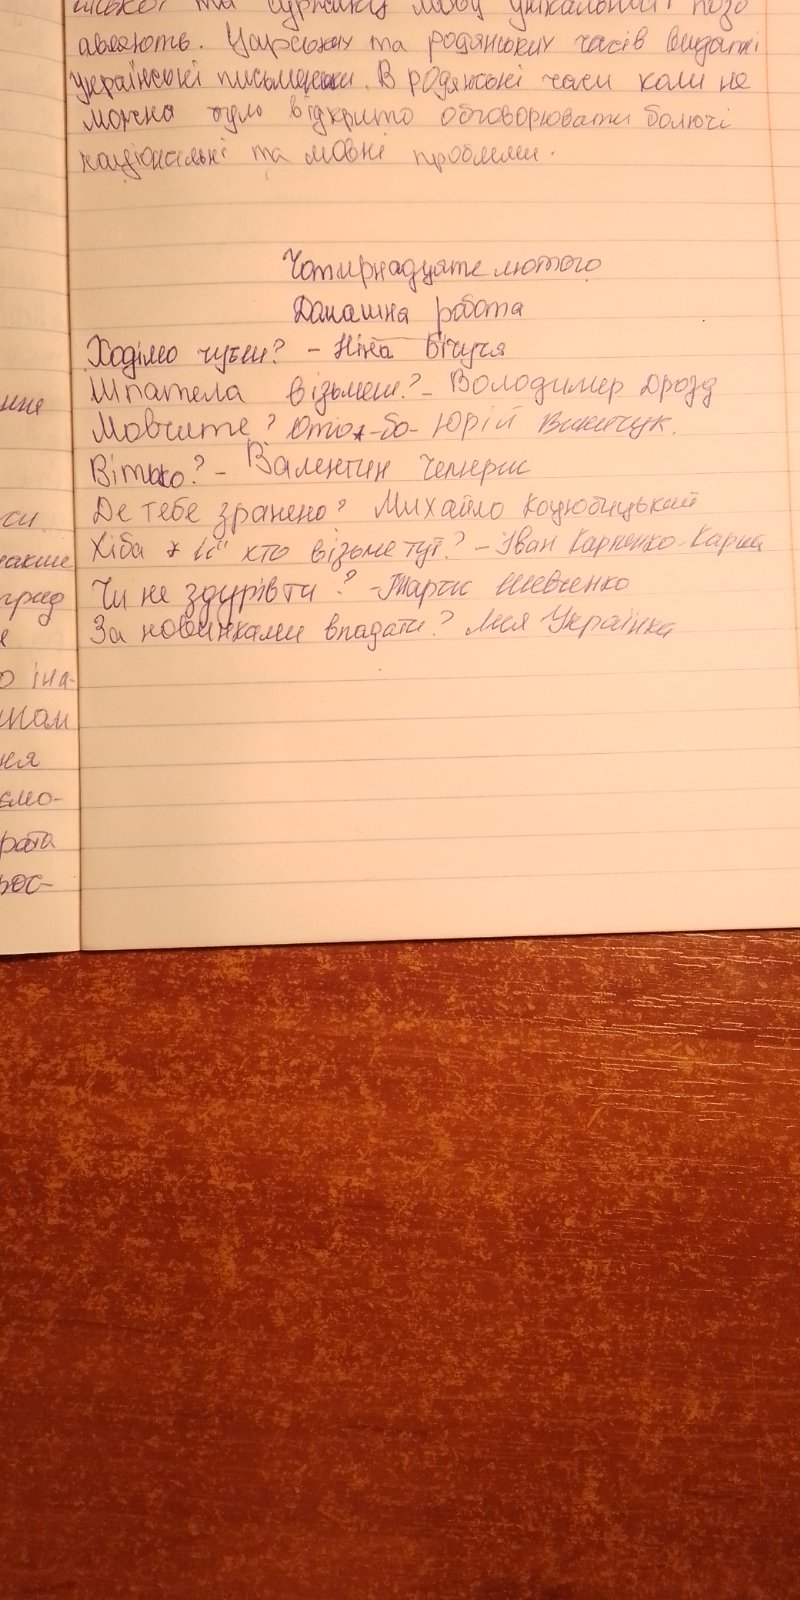 та суржику мову унікальний позб
авляють. Царських та родянських часів видатні
українські письменники. В родянські часи коли не
можна було відкрито обговорювати болючі
національні та мовні проблеми.
Чотирнадцяте лютого
Домашна робота
Ходімо чути? - Ніна Бічуя
Шпателя візьмеш? - Володимир Дрозд
Мовчите? Отож-бо- Юрій Винничук.
Вітько? - Валентин Чемерис
Де тебе зранено? Михайло Коцюбицький
Хіба її" хто візьме тут? - Іван Карпенко-Карий
Чи не здурів ти? - Тарас Шевченко
За новинками впадати? Леся Українка
нне
си.
накше
град
я
о іна-
ином
ня
ємо-
рота
рос-